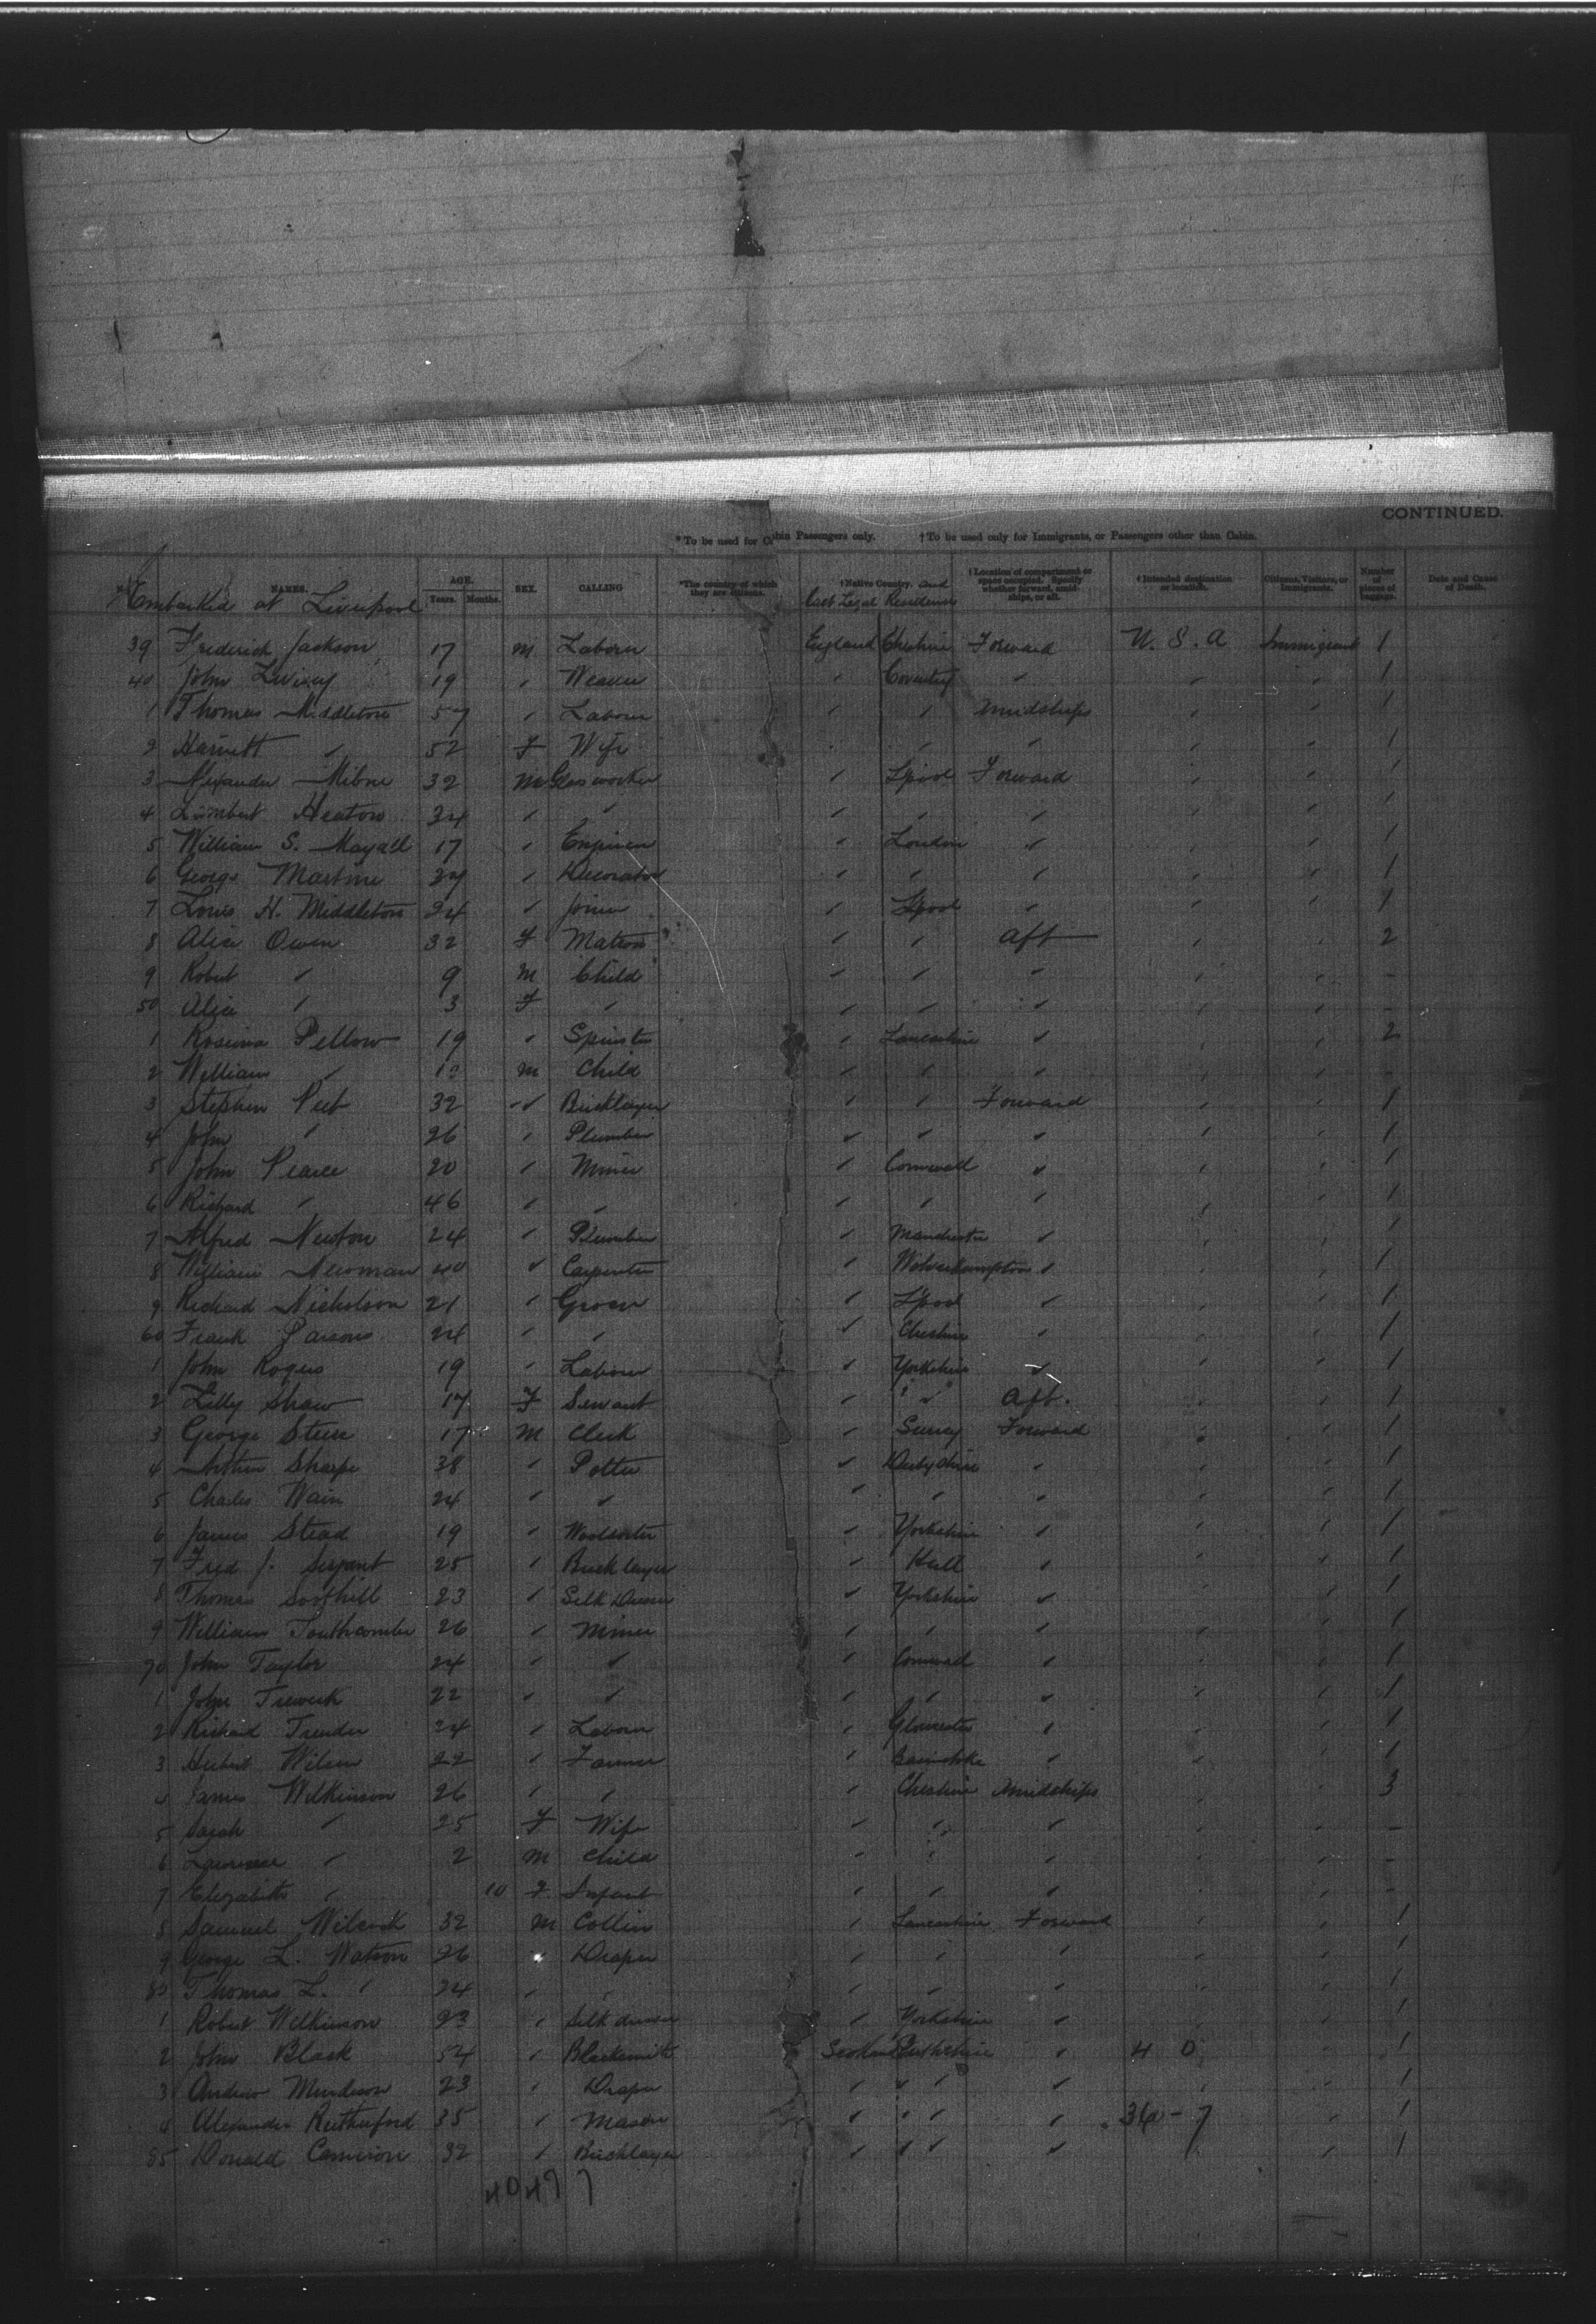 CONTINUED.
*To be used for Cabin Passengers only. †To be used only for Immigrants, or Passengers other than Cabin.
NAMES. AGE. Years. Months. SEX. CALLING *The country of which they are citizens. †Native Country. and Last Legal Residence †Location of compartment or space occupied. Specify whether forward, amidships, or aft. †Intended destination or location. Citizens, Visitors, or Immigrants. Number of pieces of baggage. Date and Cause of Death.
Embarked at Liverpool
39 Frederick Jackson 17 M Laborer England Cheshire Forward U. S. A Immigrant 1
40 John Livisey 19 " Weaver " Coventry " " " 1
1 Thomas Middleton 57 " Laborer " " Amidships " " 1
2 Harriett " 52 F Wife " " " " " 1
3 Alexander Milne 32 M Glassworker " Lpool Forward " " 1
4 Lambert Heaton 34 " " " " " " " 1
5 William S. Mayall 17 " Engineer " London " " " 1
6 George Martine " Decorator " " " " " 1
7 Louis H. Middleton 24 " Joiner " Lpool " " " 1
8 Alice Owen 32 F Matron " " Aft " " 2
9 Robert " 9 M Child " " " " " -
50 Alice " 3 F " " " " " " -
1 Rosina Pellow 19 " Spinster " Lancashire " " " 2
2 William " M Child " " " " " -
3 Stephen Peet 32 " Bricklayer " " Forward " " 1
4 John " 26 " Plumber " " " " " 1
5 John Pearce 20 " Miner " Cornwall " " " 1
6 Richard " 46 " " " " " " " 1
7 Alfred Newton 24 " Plumber " Manchester " " " 1
8 William Newman 40 " Carpenter " Wolverhampton " " " 1
9 Richard Nicholson 21 " Grocer " L'pool " " " 1
60 Frank Parsons 24 " " " Cheshire " " " 1
1 John Rogers 19 " Laborer " Yorkshire " " " 1
2 Lilly Shaw 17 F Servant " " Aft. " " 1
3 George Steer 17 M Clerk " Surrey Forward " " 1
4 Arthur Sharpe 38 " Potter " Derbyshire " " " 1
5 Charles Wain 24 " " " " " " " 1
6 James Stead 19 " Woolsorter " Yorkshire " " " 1
7 Fred J. Serjant 25 " Bricklayer " Hull " " " 1
8 Thomas Soothill 23 " Silk Dresser " Yorkshire " " " 1
9 William Southcombe 26 " Miner " " " " " 1
70 John Taylor 24 " " " Cornwall " " " 1
1 John Treweek 22 " " " " " " " 1
2 Richard Trender 24 " Laborer " Gloucester " " " 1
3 Herbert Wilson 22 " Farmer " " " " 1
4 James Wilkinson 26 " " " Cheshire Amidships " " 3
5 Sarah " 25 F Wife " " " " " -
6 Lawrence " 2 M Child " " " " " -
7 Elizabeth " 10 F Infant " " " " " -
8 Samuel Wilcock 32 M Collier " Lancashire Forward " " 1
9 George L. Watson 26 " Draper " " " " " 1
80 Thomas L. " 24 " " " " " " " 1
1 Robert Wilkinson 23 " Silk dresser " Yorkshire " " " 1
2 John Black 54 " Blacksmith Scotland Perthshire " 4 0 " 1
3 Andrew Murdison 23 " Draper " " " " " 1
4 Alexander Rutherford 35 " Mason " " " 36-7 " 1
85 Donald Cameron 32 " Bricklayer " " " " " 1
40 47 7